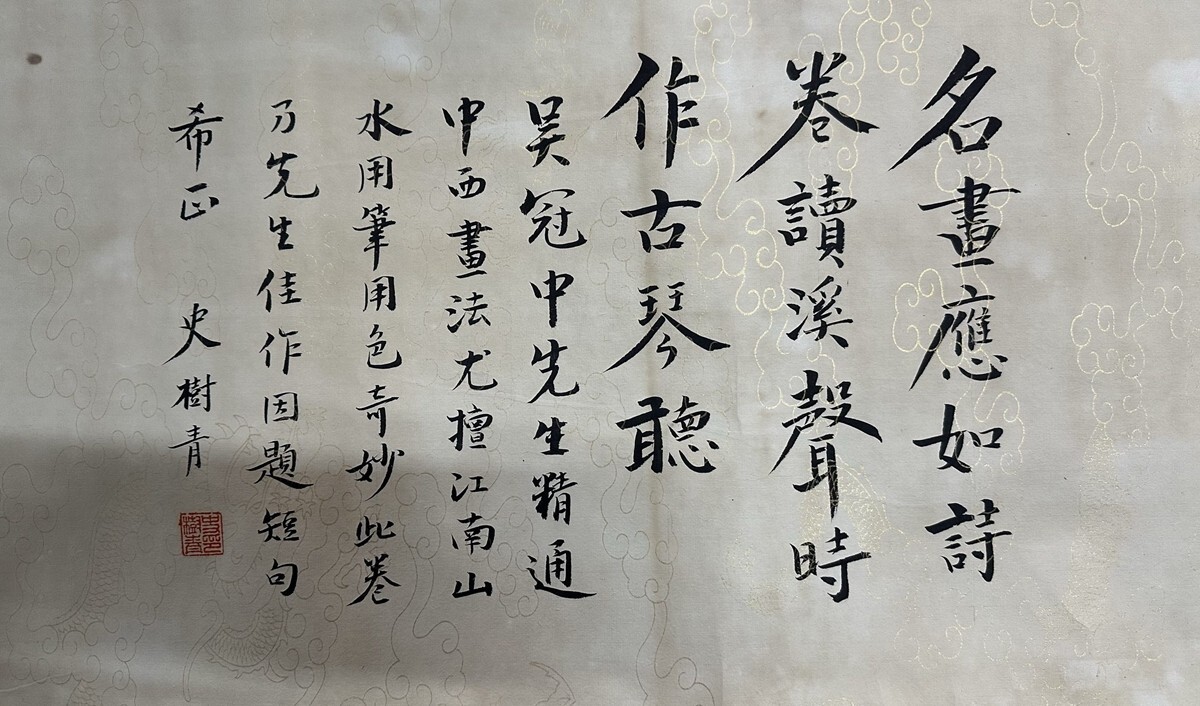 名畫應如詩
卷讀溪聲時
作古琴聽
吴冠中先生精通
中西畫法尤擅江南山
水用筆用色奇妙此卷
乃先生佳作因題短句
希正 史樹青